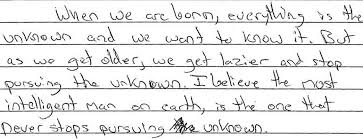 When we are born, everything is the
unknown and we want to know it. But
as we get older, we get lazier and stop
pursuing the unknown. I believe the most
intelligent man on earth, is the one that
never stops pursuing the unknown.